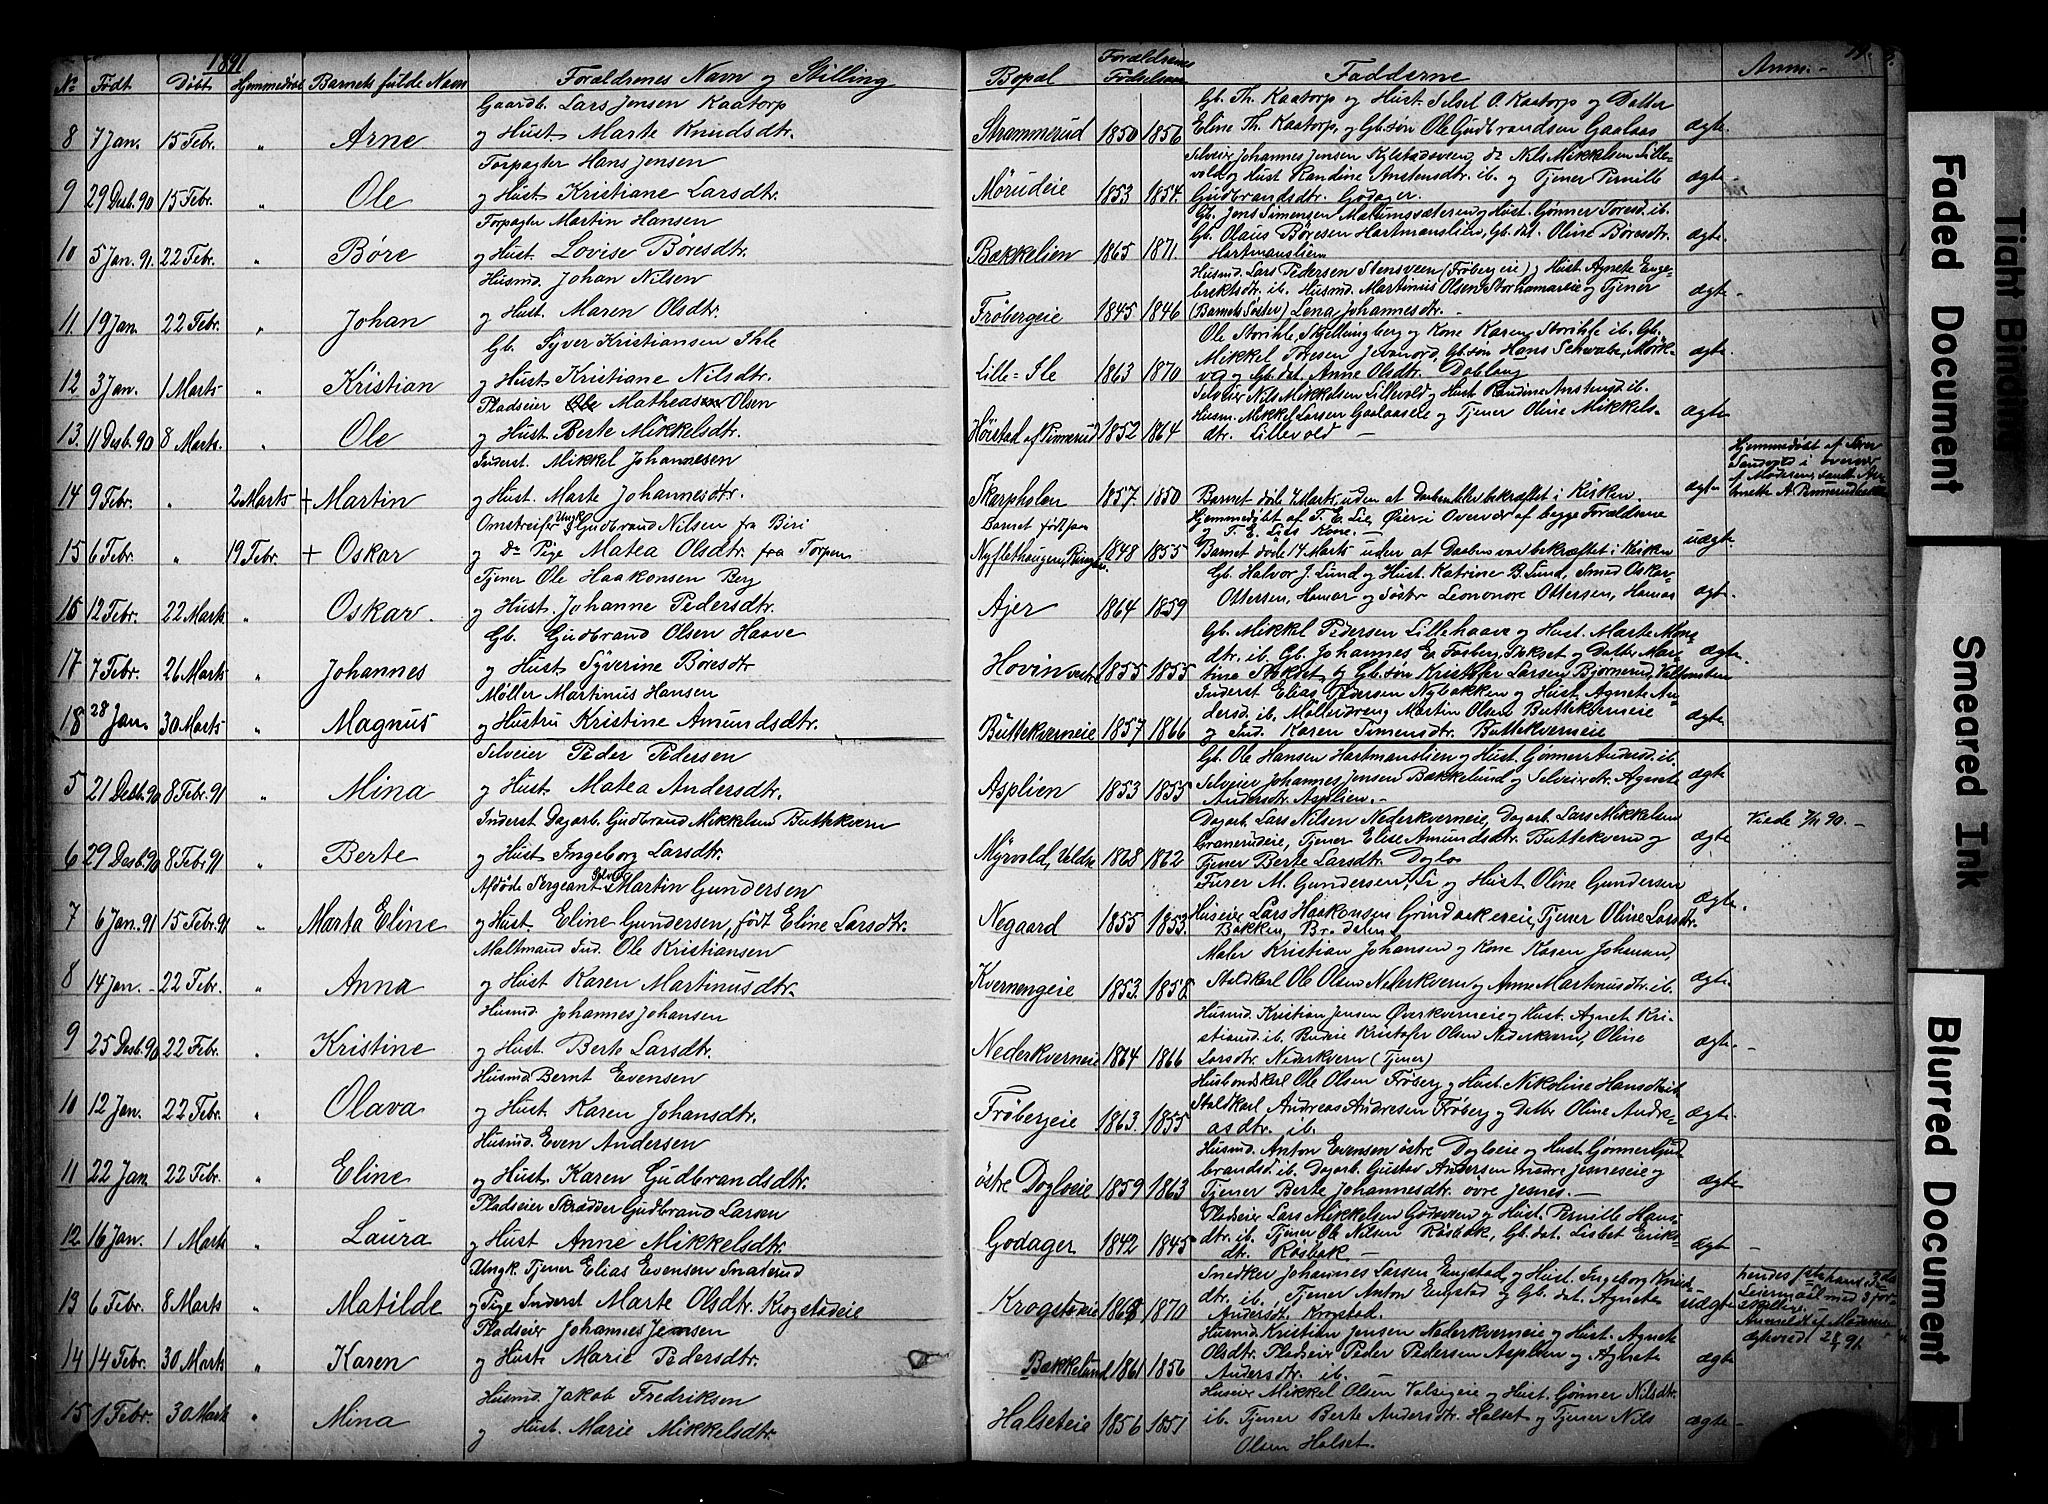 1891
№ Født Døbt Hjemmedøbt Barnets fulde Navn Forældrenes Navn og Stilling Bopæl Forældrenes Fødselsaar Fadderne Anm.
Gaardb. Lars Jensen Kaatorp
8 7 Jan. 15 Febr. " Arne og Hust. Marte Knudsdtr. Strømmerud 1850 1856 ægte
Gb. Th. Kaatorp og Hust. Silset O. Kaatorp og Datter
Eline Th. Kaatorp, og Gb. søn Ole Gudbrandsen Gaalaas
Forpagter Hans Jensen
9 29 Desb. 90 15 Febr. " Ole og Hust. Kristiane Larsdtr. Mørudeie 1853 1854 ægte
Selveier Johannes Jensen Kylstadsveen, do Nils Mikkelsen Lille-
vold og Hust. Randine Anstensdtr. ib. og Tjener Pernille
Gudbrandsdtr. Godager.
Forpagter Martin Hansen
10 5 Jan. 91. 22 Febr. " Børe og Hust. Lovise Børesdtr. Bækkelien 1865 1871. ægte
Gb. Jens Simensen Mattumsvæteren og Hust. Gønner Toresd. ib.
Gb. Olaus Børesen Hartmanslien, Gb. dat. Oline Børesdtr.
Hartmanslien
Husmd. Johan Nilsen
11. 19 Jan. 22 Febr. " Johan og Hust. Maren Olsdtr. Frøbergeie 1845 1846 ægte
Husmd. Lars Pedersen Stensveen (Frøbergeie) og Hust. Agnete Enge-
brektsdtr. ib. Husmd. Martinius Olsen Storhamareie og Tjener
(Barnets Søster) Lena Johannesdtr. -
Gb. Syver Kristiansen Ihle
12 3 Jan. 1 Marts " Kristian og Hust. Kristiane Nilsdtr. Lille-Ile 1863 1870 ægte
Ole Storihle, Skjellingberg og Kone Karen Storihle ib. Gb.
Mikkel Toresen Jevanord, Gb. søn Hans Schwabe, Mørk-
ve og Gb. dat. Anne Olsdtr. Doblaug
Pladseier Ole Mathias Olsen
13. 11 Desb. 90 8 Marts. " Ole og Hust. Berte Mikkelsdtr. Høistad af Pinnerud 1852 1864 ægte
Selveier Nils Mikkelsen Lillevold og Hust. Randine Anstensd. ib.
Husm. Mikkel Larsen Gaalaaseie og Tjener Oline Mikkels-
dtr. Lillevold -
Inderst. Mikkel Johannesen
14 9 Febr. " 2 Marts + Martin og Hust. Marte Johannesdtr. Skarpholen 1857 1850 ægte
Barnet døde 4 Marts, uden at Daaben blev bekræftet i Kirken.
Hjemmedøbt af
i overvær
af Moderen samt
Omstreifer Ungk. Gudbrand Nilsen fra Biri
15 6 Febr " 19 Febr + Oskar og do Pige Matea Olsdtr. fra Torpen
Barnet født paa
Nyflethaugen, 1848 1855 uægt.
Hjemmedøbt af T. E. Lie, Øier i Overvær af begge Forældrene
og T. E. Lies Kone. -
Barnet døde 14 Marts uden at Daaben var bekræftet i Kirken
Tjener Ole Haakonsen Berg
16 12 Febr. 22 Marts " Oskar. og Hust. Johanne Pedersdtr. Ajer 1864 1859 ægte
Gb. Halvor J. Lund og Hust. Katrine B. Lund, Smed Oskar
Ottersen, Hamar og Søstr Leononore Ottersen, Hamar
Gb. Gudbrand Olsen Haave
17 7 Febr. 26 Marts " Johannes og Hust. Syverine Børesdtr Hovin vestre 1855 1855 ægte
Gb. Mikkel Pedersen Lillehaave og Hust. Marte
dtr. ib. Gb. Johannes E. Fosberg, Stokset og Datter Mar-
tine Stokset og Gb. søn Kristofer Larsen Bjørnerud,
Møller Martinus Hansen
18 28 Jan. 30 Marts " Magnus og Hustru Kristine Amundsdtr. Buttekværneie 1857 1866 ægte
Inderst Elias Pedersen Nybakken og Hust. Agnete An-
dersd. ib. Møllerdreng Martin Olsen Buttekverneie
og Ind. Karen Simensdtr. Buttekverneie
Selveier Peder Pedersen
5 21 Desb. 90 8 Febr. 91 " Mina og Hust. Matea Andersdtr. Asplien 1853 1855 ægte
Gb. Ole Hansen Hartmanslien og Hust. Gønner ib.
Selveier Johannes Jensen Bækkelund og Selveierdtr. Agnete
Andersdtr. Asplien. -
Inderst Dagarb. Gudbrand Mikkelsen Buttekvern
6 29 Desb. 90 8 Febr. 91 " Berte og Hust. Ingeborg Larsdtr. Myrvold, Veldre 1868 1862 ægte
Dagarb. Lars Nilsen Nederkverneie, Dagarb. Lars Mikkelsen
Granerudeie, Tjener Elise Amundsdtr. Buttekvern og
Tjener Berte Larsdtr. Doglo
Viede 7/11 90. -
Afdøde Sergeant Martin Gundersen
7 6 Jan. 91 15 Febr. 91 " Marta Eline og Hust. Eline Gundersen, født Eline Larsdtr. Negaard 1855 1853. ægte
Furer M. Gundersen, Li og Hust. Oline Gundersen
Huseier Lars Haakonsen Grindakereie, Tjener Oline Larsdtr.
Bakken, Brødalen
Maltmand Ind. Ole Kristiansen
8 14 Jan. - 22 Febr. " Anna og Hust. Karen Martinusdtr. Kvernengeie 1853. 1858. ægte
Maler Kristian Johansen og Kone Karen Johansen,
Staldkarl Ole Olsen Nederkvern og Anne Martinusdtr. ib.
Husmd. Johannes Johansen
9 25 Desb. 90 22 Febr. " Kristine og Hust. Berte Larsdtr. Nederkverneie 1864 1866 ægte
Husmd. Kristian Jensen Øverkverneie og Hust. Agnet Kri-
stiansd. ib. Budeie Kristofer Olsen Nederkvern, Oline
Larsdtr. Nederkvern (Tjener)
Husmd. Bernt Evensen
10 12 Jan. 22 Febr " Olava og Hust. Karen Johansdtr. Frøbergeie 1863. 1855 ægte
Husbondskarl Ole Olsen Frøberg og Hust. Nikoline Hansdtr. ib
Staldkarl Andreas Andresen Frøberg og Datter Oline Andre-
asdtr. ib.
Husmd. Even Andersen
11 22 Jan. 22 Febr. " Eline og Hust. Karen Gudbrandsdtr. østre Dogloeie 1859 1863 ægte
Husmd. Anton Evensen østre Dogloeie og Hust. Gønner Gud
brandsd. ib. Dagarb. Gustav Andersen nedre Jesneseie og
Tjener Berte Johannesdtr. øvre Jesnes. -
Pladseier Skrædder Gudbrand Larsen
12 16 Jan. 1 Marts " Laura og Hust. Anne Mikkelsdtr. Godager 1842 1845 ægte
Pladseier Lars Mikkelsen og Hust. Pernille Hans-
dtr. ib. Tjener Ole Nilsen Røsbak, Gb. dat. Lisbet Eriks-
dt. Røsbak -
Ungk. Tjener Elias Evensen Snaterud
13 6 Febr. 8 Marts " Matilde og Pige Inderst Marte Olsdtr. Krogstadeie Krogstadeie 1868 1870 uægte
Snedker Johannes Larsen Engstad, og Hust. Ingeborg Knud-
dtr. ib., Tjener Anton Engstad og Gb. dat. Agnete
Andersdt. Krogstad.
hendes
Leiermaal med 3 for-
skellige.
Anmeldt af Moderen
Pladseier Johannes Jensen
14 14 Febr. 30 Marts " Karen og Hust. Marie Pedersdtr. Bækkelund 1861 1856 ægte
Husmd. Kristian Jensen Nederkverneie og Hust. Agnete
Olsdtr. Pladseier Peder Pedersen Asplien og Agnete
Andersdtr. ib. -
Husmd. Jakob Fredriksen
15 1 Febr. 30 Marts " Mina og Hust. Marie Mikkelsdtr. Halseteie 1856 1851 ægte
Huseier Mikkel Olsen Valsigeie og Hust. Gønner Nilsdtr.
ib. Tjener Berte Andersdtr. Halset og Tjener Nils
Olsen Halset.
Faded Document
Tight Binding
Smeared Ink
Blurred Document